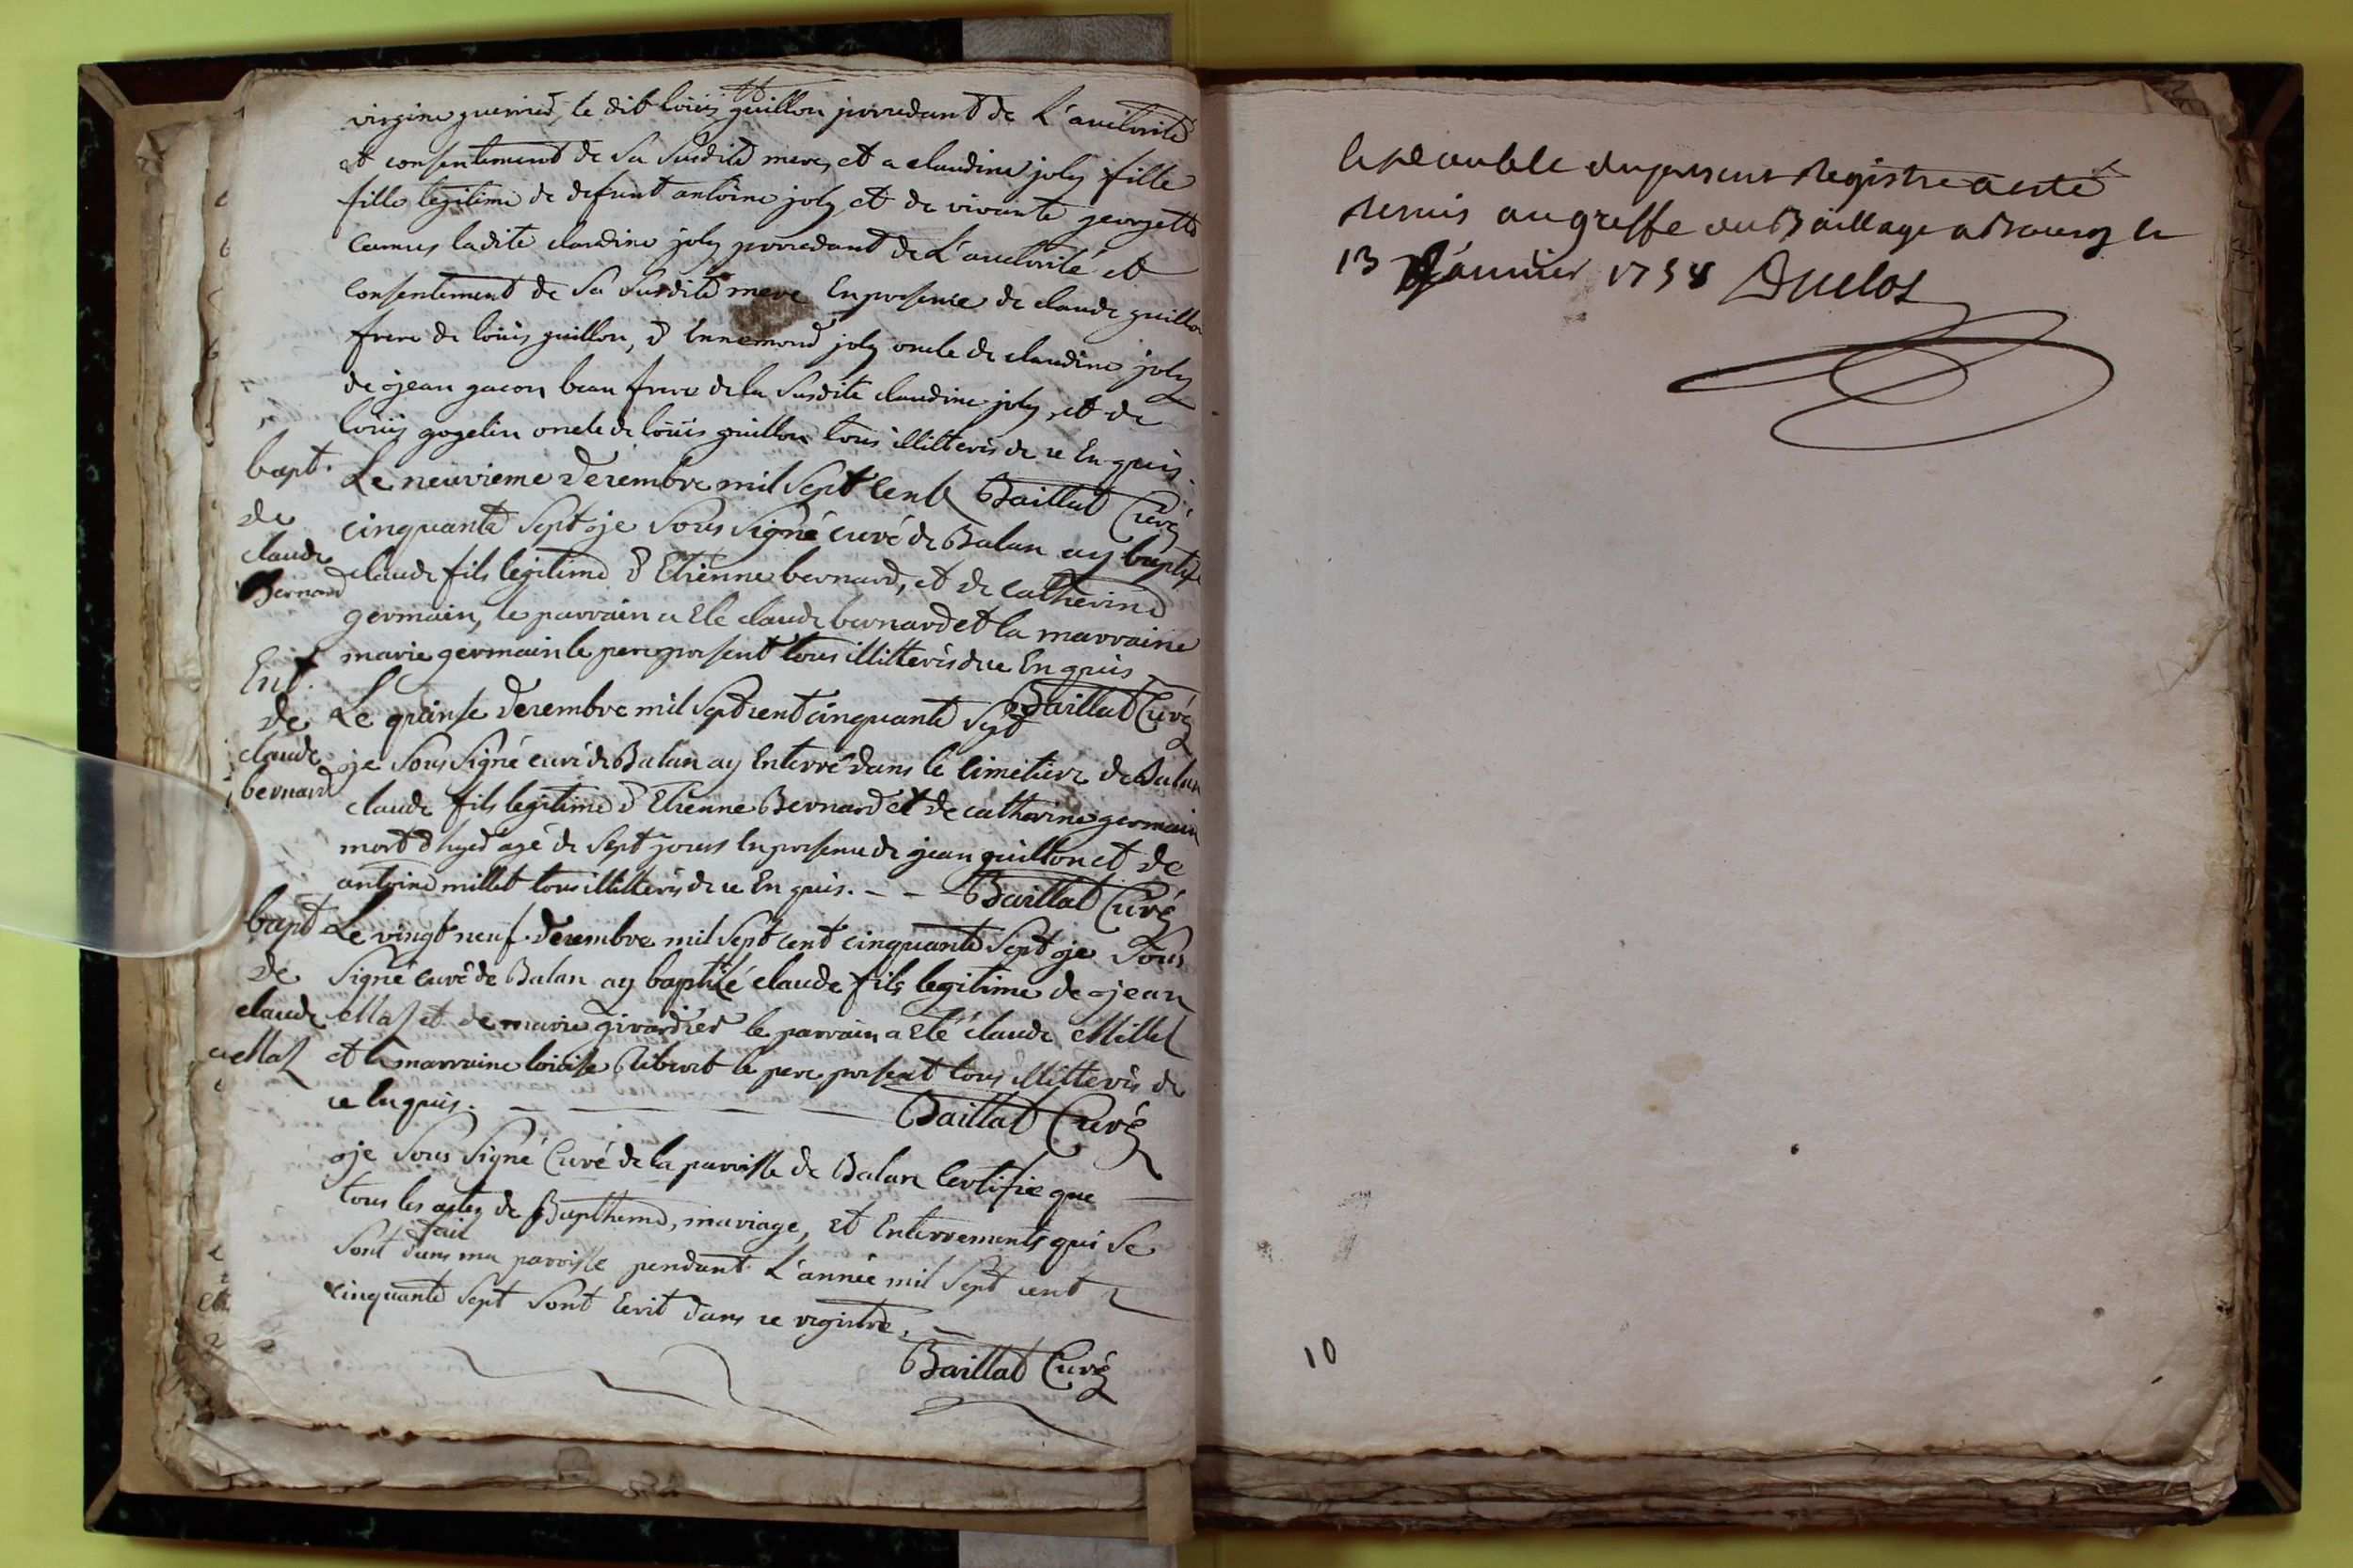 virgine guerrier, le dit loüis guillon procedant de L'authorité
et consentement de Sa Susdite mere, et a claudine joly fille
fille legitime de defunt antoine joly et de vivante georgette
Camus ladite claudine joly procedant de L'authorité et
Consentement de Sa Susdite mere En presence de claude guillon
frere de loüis guillon, d'Ennemond joly oncle de claudine joly
de jean gacon beau frere de la Susdite claudine joly, et de
loüis gogelin oncle de loüis guillon tous illitterés de ce Enquis.
Baillat Curé
bapt.
de
claude
Bernard
Le neuvieme decembre mil Sept Cent
cinquante Sept je Sous Signé curé de Balan ay baptisé
claude fils legitime d'Etienne bernard, et de catherine
germain, le parrain a Eté claude bernard et la marraine
marie germain le pere present tous illitterés de ce Enquis
Baillat Curé
Ent.
de
claude
bernard
Le quinse decembre mil Sept cent cinquante Sept
je Sous Signé curé de Balan ay Enterré dans le Cimetiere de Balan
claude fils legitime d'Etienne Bernard et de catherine germain
mort d'hyer agé de Sept jours En presence de jean guillon et de
antoine millet tous illitterés de ce Enquis. - - Baillat Curé
bapt
de
claude
Mas
Le vingt neuf decembre mil Sept cent cinquante Sept je Sous
Signé curé de Balan ay baptisé claude fils legitime de jean
Mas et de marie girardier le parrain a Eté claude Millet
et la marraine loüise Ribert le pere present tous illitterés de
ce Enquis. Baillat Curé
je Sous Signé Curé de la parroisse de Balan Certifie que
tous les actes de Bapthême, mariage, et Enterrements qui Se
Sont fait dans ma parroisse pendant L'année mil Sept cent
cinquante Sept Sont Ecrit dans ce registre.
Baillat Curé
le double du present Registre a esté
remis au greffe du Baillage a Bourg le
13 Janvier 1758 Duclos
10